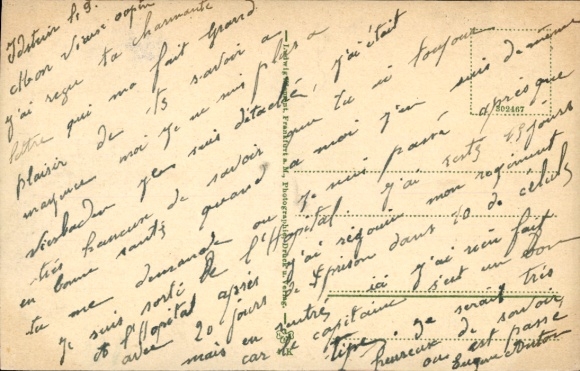 Idstein le 9.
Mon vieux copin
j'ai reçue ta charmante
lettre qui ma fait Grand
plaisir de ts savoir a
mayence moi je ne suis plus a
Wiesbaden j'en suis détaché j'étais
très heureux de savoir que tu ai toujour
en bonne santé quand a moi j'en suis de même
tu me demande ou je suis passé après que
je suis sorté de l'Hopital. j'ai resté 45 jours
a l'Hopital après j'ai rejouin mon regiment
avec 20 jours de prison dans 10 de célule
mais en rentre ici j'ai rien fait
car le capitaine s'est un bon
tipe. Je serait très
heureux de savoir
ou est passe
Eugène
Frankfurt a. M., Photographie-Druck u. Verlag.
302467